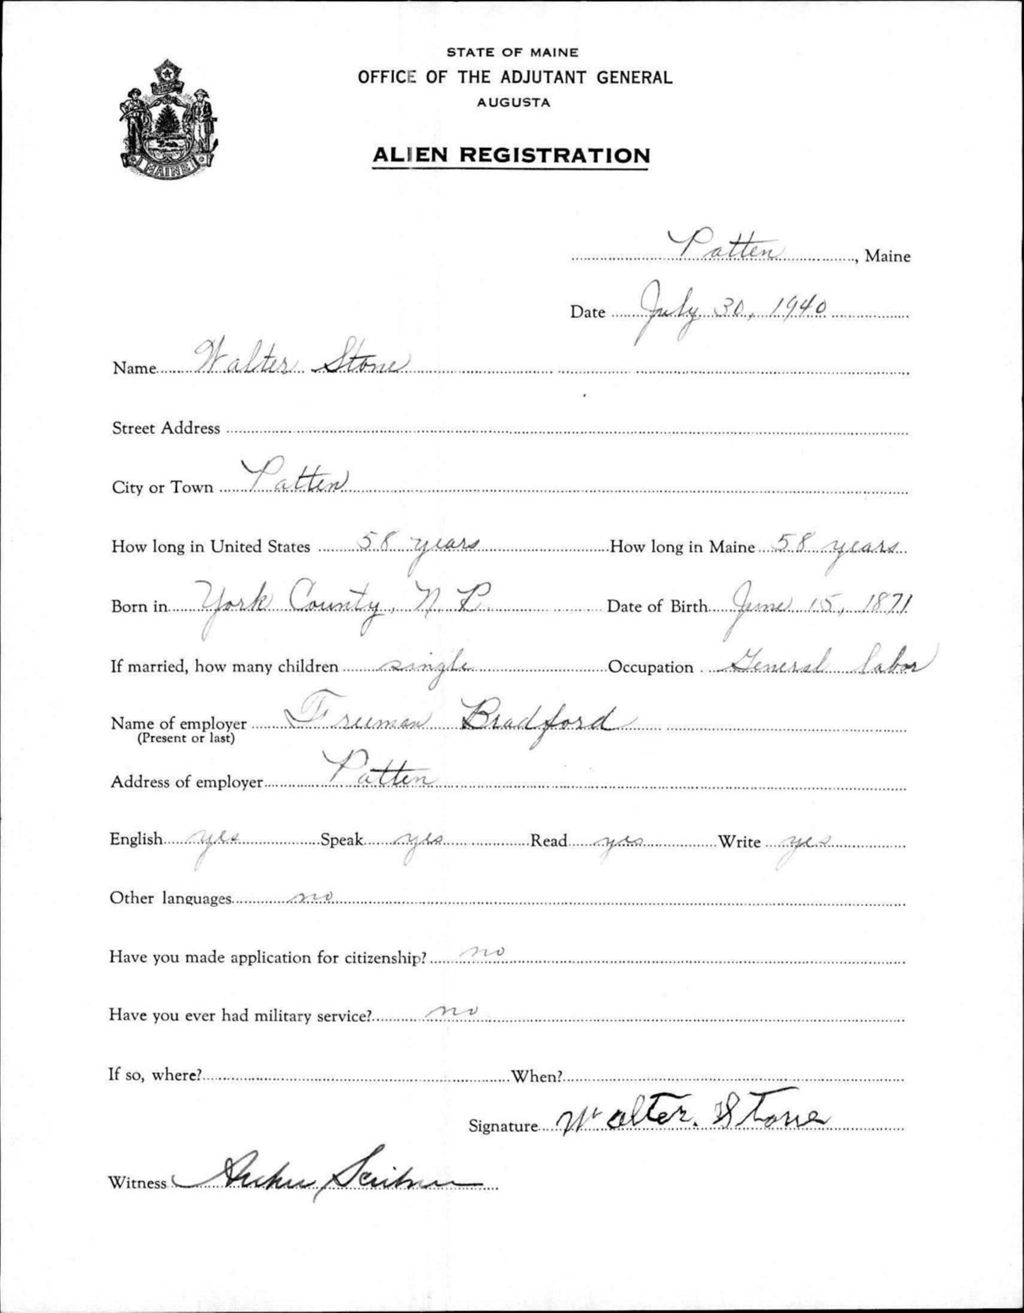 STATE OF MAINE
OFFICE OF THE ADJUTANT GENERAL
AUGUSTA
ALIEN REGISTRATION
MAINE
Patten, Maine
Date July 30, 1940
Name Walter Stone
Street Address
City or Town Patten
How long in United States 58 years How long in Maine 58 years
Born in York County, N. B. Date of Birth June 15, 1871
If married, how many children single Occupation General labor
Name of employer Freeman Bradford
(Present or last)
Address of employer Patten
English yes Speak yes Read yes Write yes
Other languages no
Have you made application for citizenship? no
Have you ever had military service? no
If so, where? When?
Signature Walter. Stone
Witness Scribner